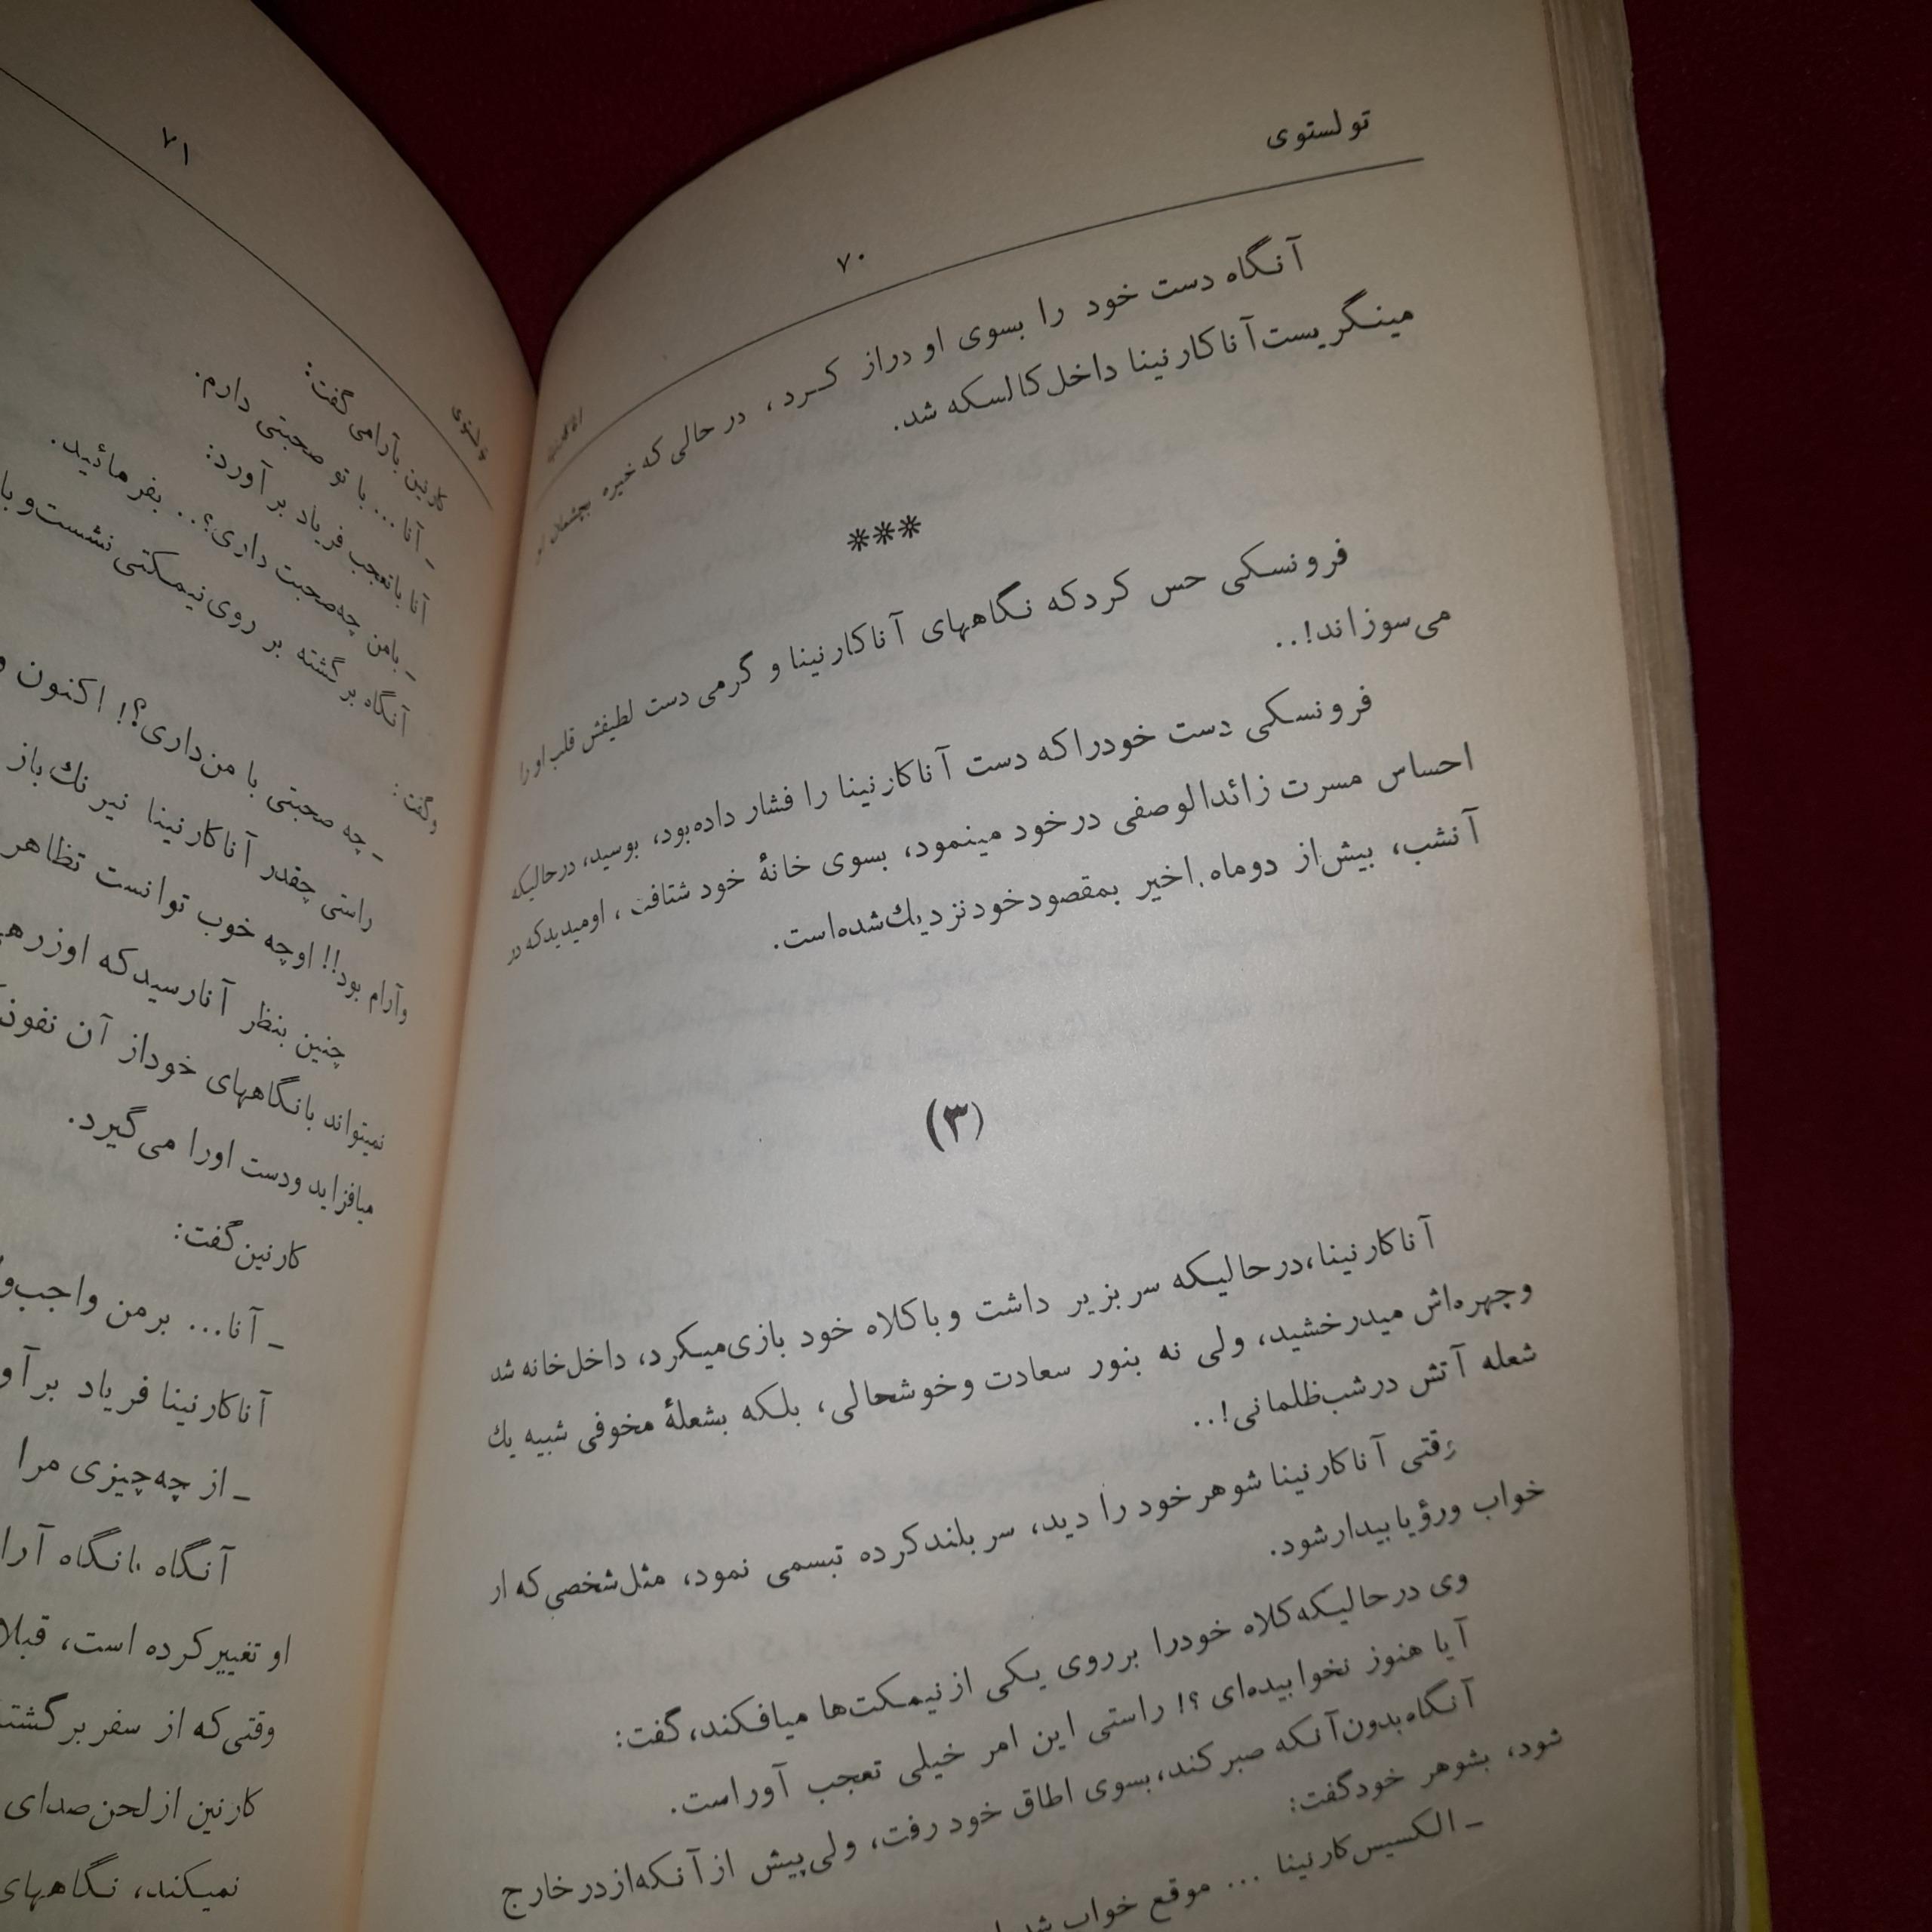 تولستوی
۷۰
آناکارنینا
آنگاه دست خود را بسوی او دراز کرد، در حالی‌که خیره بچشمان او
مینگریست آناکارنینا داخل کالسکه شد.
***
فرونسکی حس کرد که نگاههای آناکارنینا و گرمی دست لطیفش قلب او را
می‌سوزاند!..
فرونسکی دست خودرا که دست آناکارنینا را فشار داده‌بود، بوسید، درحالیکه
احساس مسرت زائدالوصفی درخود مینمود، بسوی خانهٔ خود شتافت، اومیدیدکه در
آنشب، بیش‌از دوماه اخیر بمقصودخود نزدیك‌شده‌است.
(۳)
آناکارنینا، درحالیکه سر بزیر داشت و باکلاه خود بازی‌میکرد، داخل‌خانه شد
وچهره‌اش میدرخشید، ولی نه بنور سعادت وخوشحالی، بلکه بشعلهٔ مخوفی شبیه یك
شعله آتش درشب‌ظلمانی!..
وقتی آناکارنینا شوهرخود را دید، سر بلندکرده تبسمی نمود، مثل‌شخصی‌که از
خواب ورؤیا بیدارشود.
وی درحالیکه‌کلاه خودرا برروی یکی ازنیمکت‌ها میافکند، گفت:
آیا هنوز نخوابیده‌ای؟! راستی این امر خیلی تعجب آوراست.
آنگاه‌بدون‌آنکه صبرکند، بسوی اطاق خود رفت، ولی‌پیش ازآنکه‌ازدرخارج
شود، بشوهر خودگفت:
ـ الکسیس‌کارنینا ... موقع خواب
تولستوی
۷۱
کارنین بآرامی گفت:
ـ آنا ... با تو صحبتی دارم.
آنا باتعجب فریاد برآورد:
ـ بامن چه‌صحبت داری؟.. بفرمائید.
آنگاه برگشته بر روی‌نیمکتی نشست و با
وگفت:
ـ چه صحبتی با من‌داری؟! اکنون
راستی چقدر آناکارنینا نیرنك‌باز
وآرام بود!! اوچه خوب توانست تظاهر
چنین بنظر آنارسیدکه اوزره
نمیتواند بانگاههای خوداز آن نفوذ
میافزاید ودست اورا می‌گیرد.
کارنین‌گفت:
ـ آنا... برمن واجب
آناکارنینا فریاد برآو
ـ از چه‌چیزی مرا
آنگاه بانگاه آرا
او تغییرکرده است، قبلا
وقتی‌که از سفر برگشته
کارنین ازلحن‌صدای
نمیکند، نگاههای